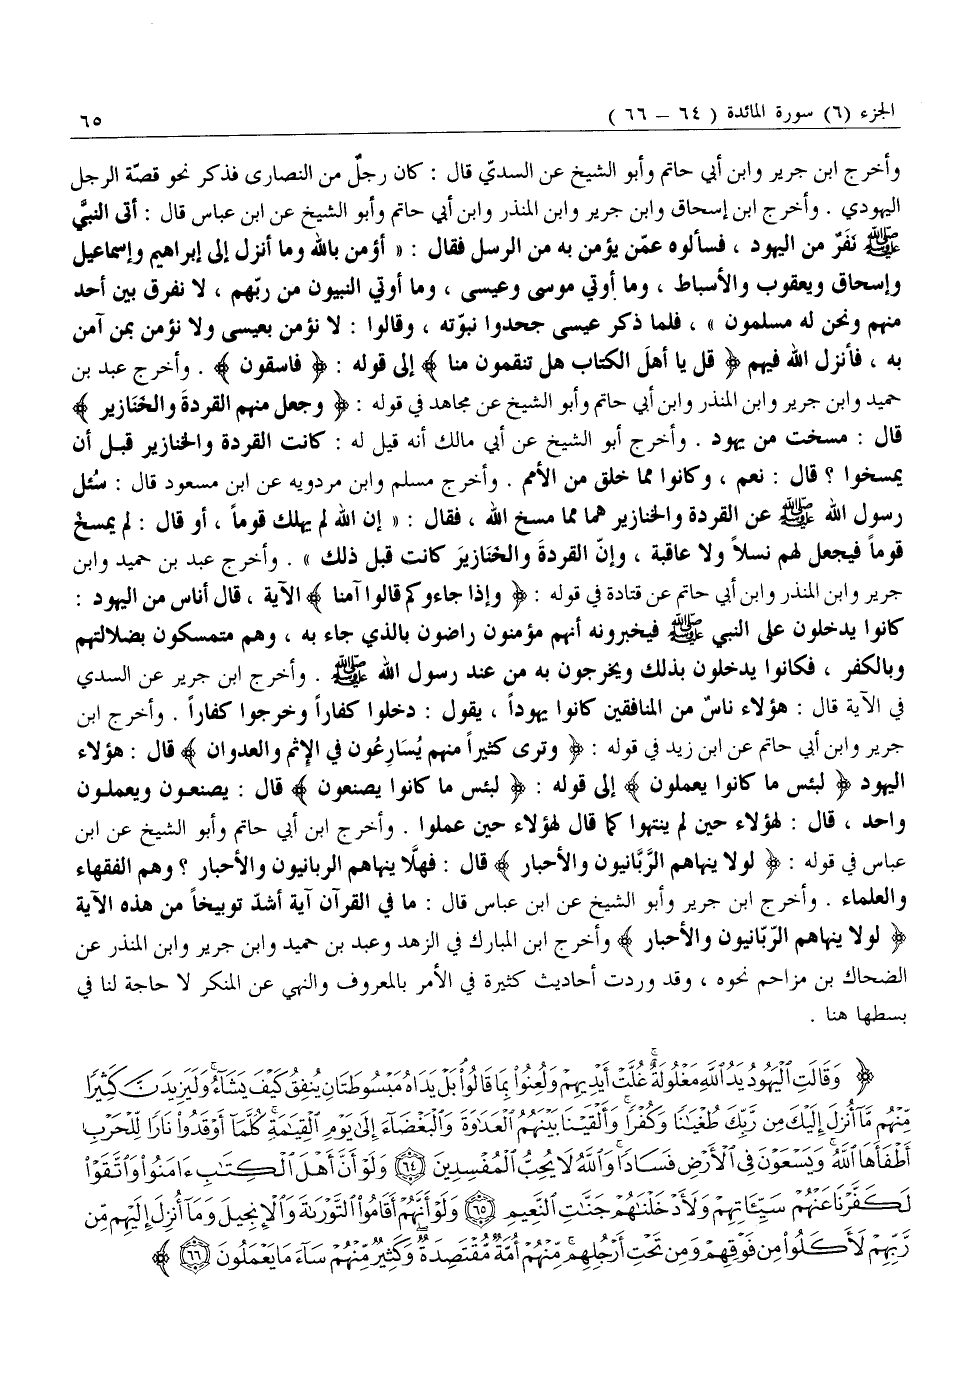 الجزء (٦) سورة المائدة ( ٦٤ - ٦٦ )
٦٥
وأخرج ابن جرير وابن أبي حاتم وأبو الشيخ عن السديّ قال : كان رجلٌ من النصارى فذكر نحو قصّة الرجل
اليهودي . وأخرج ابن إسحاق وابن جرير وابن المنذر وابن أبي حاتم وأبو الشيخ عن ابن عباس قال : أتى النبيَّ
ﷺ نَفَرٌ من اليهود ، فسألوه عمّن يؤمن به من الرسل فقال : « أؤمن بالله وما أنزل إلى إبراهيم وإسماعيل
وإسحاق ويعقوب والأسباط ، وما أوتي موسى وعيسى ، وما أوتي النبيون من ربّهم ، لا نفرق بين أحد
منهم ونحن له مسلمون » ، فلما ذكر عيسى جحدوا نبوّته ، وقالوا : لا نؤمن بعيسى ولا نؤمن بمن آمن
به ، فأنزل الله فيهم ﴿ قل يا أهلَ الكتاب هل تنقمون منا ﴾ إلى قوله : ﴿ فاسقون ﴾ . وأخرج عبد بن
حميد وابن جرير وابن المنذر وابن أبي حاتم وأبو الشيخ عن مجاهد في قوله : ﴿ وجعل منهم القردةَ والخَنَازير ﴾
قال : مسخت من يهود . وأخرج أبو الشيخ عن أبي مالك أنه قيل له : كانت القردة والخنازير قبل أن
يمسخوا ؟ قال : نعم ، وكانوا مما خلق من الأمم . وأخرج مسلم وابن مردويه عن ابن مسعود قال : سُئل
رسول الله ﷺ عن القردة والخنازير هما مما مسخ الله ، فقال : « إن الله لم يهلك قوماً ، أو قال : لم يمسخْ
قوماً فيجعل لهم نسلاً ولا عاقبة ، وإنّ القردةَ والخَنَازيرَ كانت قبل ذلك » . وأخرج عبد بن حميد وابن
جرير وابن المنذر وابن أبي حاتم عن قتادة في قوله : ﴿ وإذا جاءوكم قالوا آمنا ﴾ الآية ، قال أناس من اليهود :
كانوا يدخلون على النبي ﷺ فيخبرونه أنهم مؤمنون راضون بالذي جاء به ، وهم متمسكون بضلالتهم
وبالكفر ، فكانوا يدخلون بذلك ويخرجون به من عند رسول الله ﷺ . وأخرج ابن جرير عن السدي
في الآية قال : هؤلاء ناسٌ من المنافقين كانوا يهوداً ، يقول : دخلوا كفاراً وخرجوا كفاراً . وأخرج ابن
جرير وابن أبي حاتم عن ابن زيد في قوله : ﴿ وترى كثيراً منهم يُسَارِعُون في الإثم والعدوان ﴾ قال : هؤلاء
اليهود ﴿ لبئس ما كانوا يعملون ﴾ إلى قوله : ﴿ لبئس ما كانوا يصنعون ﴾ قال : يصنعون ويعملون
واحد ، قال : لهؤلاء حين لم ينتهوا كما قال لهؤلاء حين عملوا . وأخرج ابن أبي حاتم وأبو الشيخ عن ابن
عباس في قوله : ﴿ لولا ينهاهم الرَّبَّانيون والأحبار ﴾ قال : فهلَّا ينهاهم الربانيون والأحبار ؟ وهم الفقهاء
والعلماء . وأخرج ابن جرير وأبو الشيخ عن ابن عباس قال : ما في القرآن آية أشدّ توبيخاً من هذه الآية
﴿ لولا ينهاهم الرّبّانيون والأحبار ﴾ وأخرج ابن المبارك في الزهد وعبد بن حميد وابن جرير وابن المنذر عن
الضحاك بن مزاحم نحوه ، وقد وردت أحاديث كثيرة في الأمر بالمعروف والنهي عن المنكر لا حاجة لنا في
بسطها هنا .
﴿ وَقَالَتِ ٱلْيَهُودُ يَدُ ٱللَّهِ مَغْلُولَةٌ ۚ غُلَّتْ أَيْدِيهِمْ وَلُعِنُوا۟ بِمَا قَالُوا۟ بَلْ يَدَاهُ مَبْسُوطَتَانِ يُنفِقُ كَيْفَ يَشَآءُ ۚ وَلَيَزِيدَنَّ كَثِيرًا
مِّنْهُم مَّآ أُنزِلَ إِلَيْكَ مِن رَّبِّكَ طُغْيَٰنًا وَكُفْرًا ۚ وَأَلْقَيْنَا بَيْنَهُمُ ٱلْعَدَٰوَةَ وَٱلْبَغْضَآءَ إِلَىٰ يَوْمِ ٱلْقِيَٰمَةِ ۚ كُلَّمَآ أَوْقَدُوا۟ نَارًا لِّلْحَرْبِ
أَطْفَأَهَا ٱللَّهُ ۚ وَيَسْعَوْنَ فِى ٱلْأَرْضِ فَسَادًا ۚ وَٱللَّهُ لَا يُحِبُّ ٱلْمُفْسِدِينَ ﴿٦٤﴾ وَلَوْ أَنَّ أَهْلَ ٱلْكِتَٰبِ ءَامَنُوا۟ وَٱتَّقَوْا۟
لَكَفَّرْنَا عَنْهُمْ سَيِّـَٔاتِهِمْ وَلَأَدْخَلْنَٰهُمْ جَنَّٰتِ ٱلنَّعِيمِ ﴿٦٥﴾ وَلَوْ أَنَّهُمْ أَقَامُوا۟ ٱلتَّوْرَىٰةَ وَٱلْإِنجِيلَ وَمَآ أُنزِلَ إِلَيْهِم مِّن
رَّبِّهِمْ لَأَكَلُوا۟ مِن فَوْقِهِمْ وَمِن تَحْتِ أَرْجُلِهِم ۚ مِّنْهُمْ أُمَّةٌ مُّقْتَصِدَةٌ ۖ وَكَثِيرٌ مِّنْهُمْ سَآءَ مَا يَعْمَلُونَ ﴿٦٦﴾ ﴾